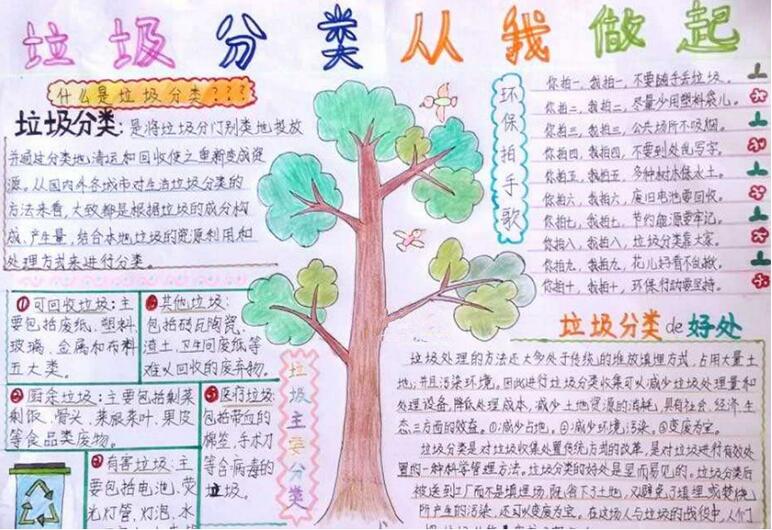 垃圾分类从我做起
什么是垃圾分类???
垃圾分类:是将垃圾分门别类地投放
并通过分类地清运和回收使之重新变成资
源。从国内外各城市对生活垃圾分类的
方法来看,大致都是根据垃圾的成分构
成、产生量,结合本地垃圾的资源利用和
处理方式来进行分类。
①可回收垃圾:主
要包括废纸,塑料,
玻璃,金属和布料
五大类。
②厨余垃圾:主要包括剩菜
剩饭、骨头、菜根菜叶、果皮
等食品类废物。
③有害垃圾:主
要包括电池、荧
光灯管、灯泡、水
④其他垃圾:
包括砖瓦陶瓷,
渣土、卫生间废纸等
难以回收的废弃物。
⑤医疗垃圾:
包括带血的
棉签、手术刀
等含病毒的
垃圾。
垃圾主要分类
环保拍手歌
你拍一,我拍一,不要随手丢垃圾。
你拍二,我拍二,尽量少用塑料袋儿。
你拍三,我拍三,公共场所不吸烟。
你拍四,我拍四,不要到处乱写字。
你拍五,我拍五,多种树木保水土。
你拍六,我拍六,废旧电池要回收。
你拍七,我拍七,节约能源要牢记。
你拍八,我拍八,垃圾分类靠大家。
你拍九,我拍九,花儿好看不乱揪。
你拍十,我拍十,环保行动要坚持。
垃圾分类de好处
垃圾处理的方法还大多处于传统的堆放填埋方式,占用大量土
地;并且污染环境。因此进行垃圾分类收集可以减少垃圾处理量和
处理设备,降低处理成本,减少土地资源的消耗,具有社会、经济、生
态三方面的效益。①减少占地。②减少环境污染。③变废为宝。
垃圾分类是对垃圾收集处置传统方式的改革,是对垃圾进行有效处
置的一种科学管理方法。垃圾分类的好处是显而易见的。垃圾分类后
被送到工厂而不是填埋场,既省下了土地,又避免了填埋或焚烧
所产生的污染,还可以变废为宝。在这场人与垃圾的战役中,人们